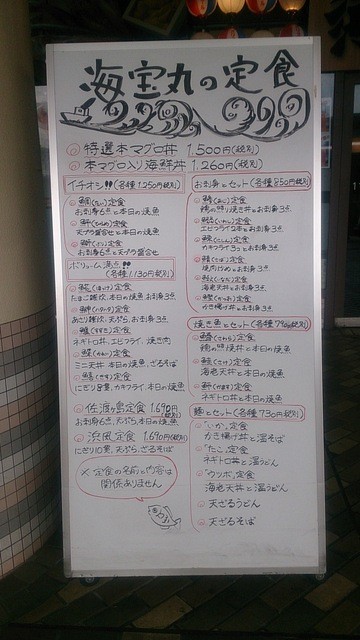 海宝丸の定食
特選本マグロ丼 1,500円(税別)
本マグロ入り海鮮丼 1,260円(税別)
イチオシ!!(各種1,250円税別)
定食
お刺身6点と本日の焼魚
定食
天プラ盛合せと本日の焼魚
定食
お刺身6点と天プラ盛合せ
ボリューム満点!!
(各種1,130円税別)
定食
たまご雑炊、本日の焼魚、お刺身3点
定食
あさり雑炊、天ぷら、お刺身3点
鱸(すずき)定食
ネギトロ丼、エビフライ、焼き肉
定食
ミニ天丼、本日の焼魚、ざるそば
定食
にぎり8貫、カキフライ、本日の焼魚
佐渡ヶ島定食 1,690円(税別)
お刺身6点、天ぷら、本日の焼魚
浜風定食 1,690円(税別)
にぎり10貫、天ぷら、ざるそば
※定食の名前と内容は
関係ありません
お刺身とセット(各種850円税別)
定食
鶏の照り焼き丼とお刺身3点
定食
エビフライ2本とお刺身3点
定食
カキフライ3ヶとお刺身3点
鯖(さば)定食
焼肉炒めとお刺身3点
定食
海老天丼とお刺身3点
鰹(かつお)定食
かき揚げ丼とお刺身3点
焼き魚とセット(各種790円税別)
鰆(さわら)定食
鶏の照り焼丼と本日の焼魚
定食
海老天丼と本日の焼魚
定食
ネギトロ丼と本日の焼魚
麺とセット(各種730円税別)
"いか"定食
かき揚げ丼と温そば
"たこ"定食
ネギトロ丼と温うどん
"ウツボ"定食
海老天丼と温うどん
天ざるうどん
天ざるそば